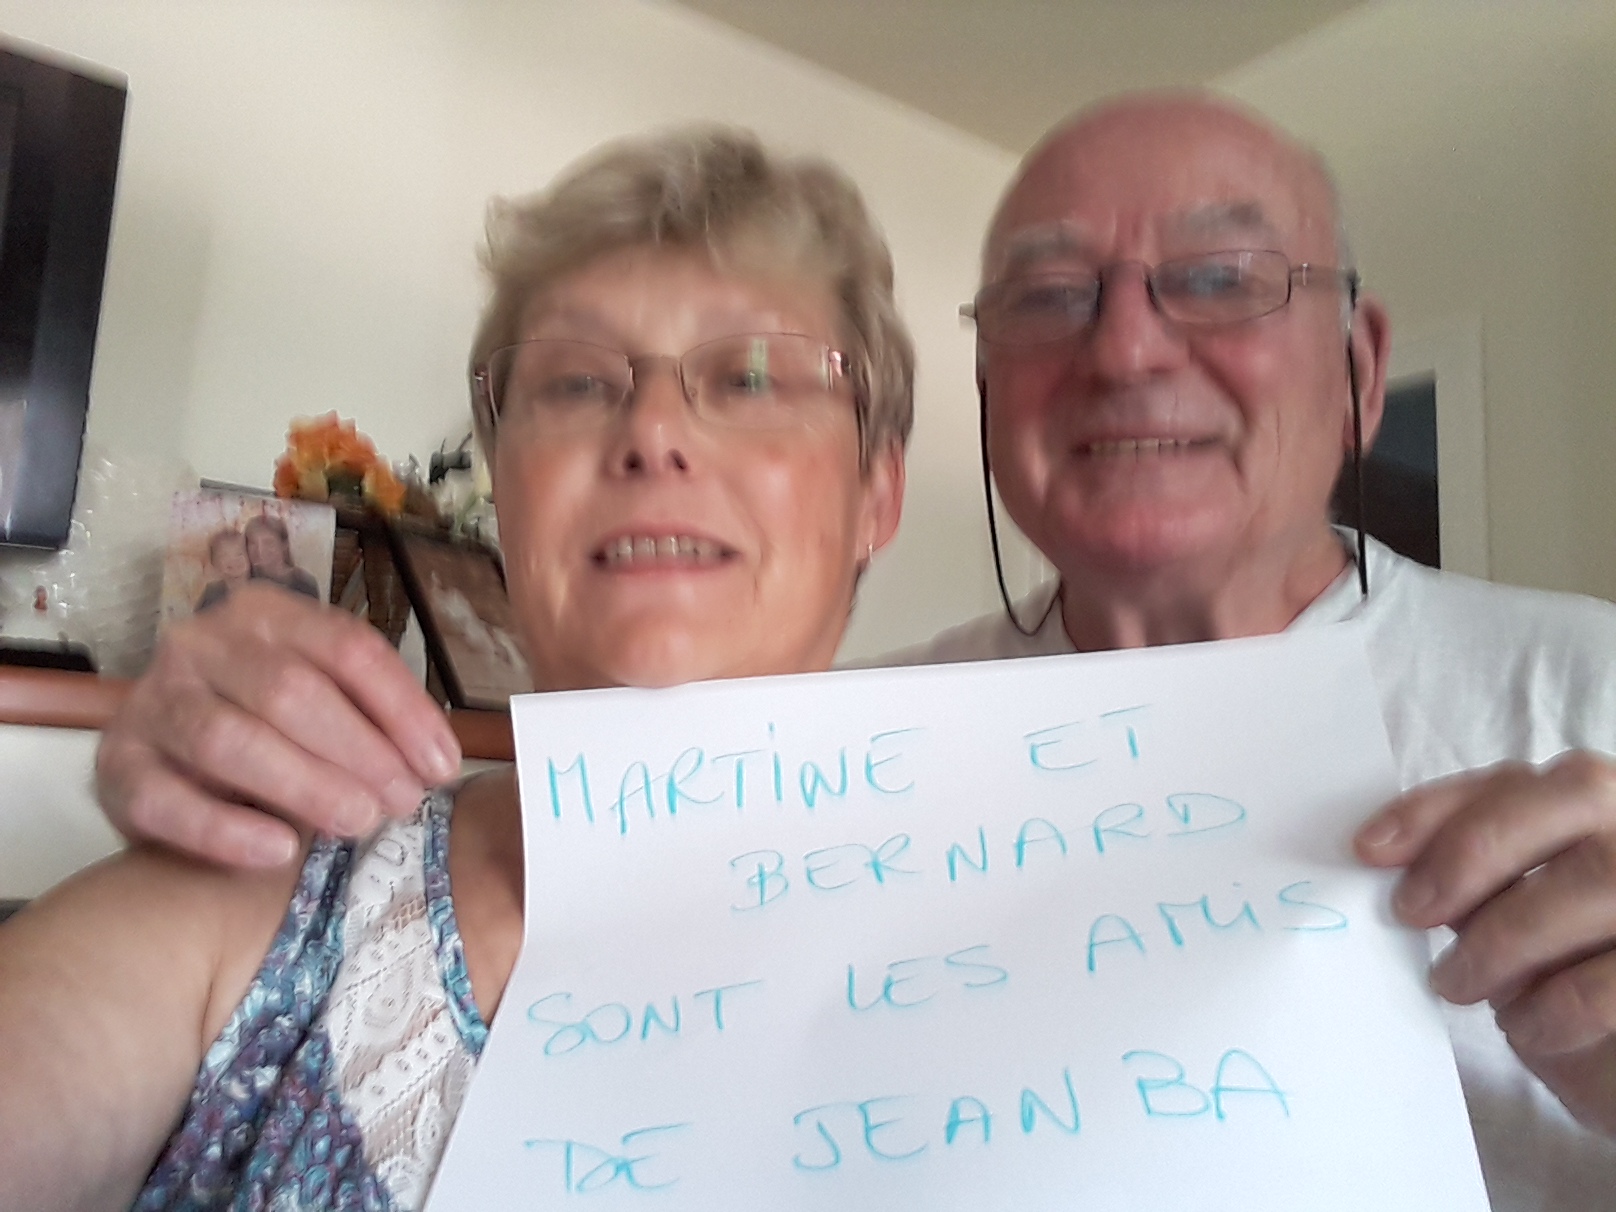 MARTiNE ET
BERNARD
SONT LES AMiS
DE JEAN BA